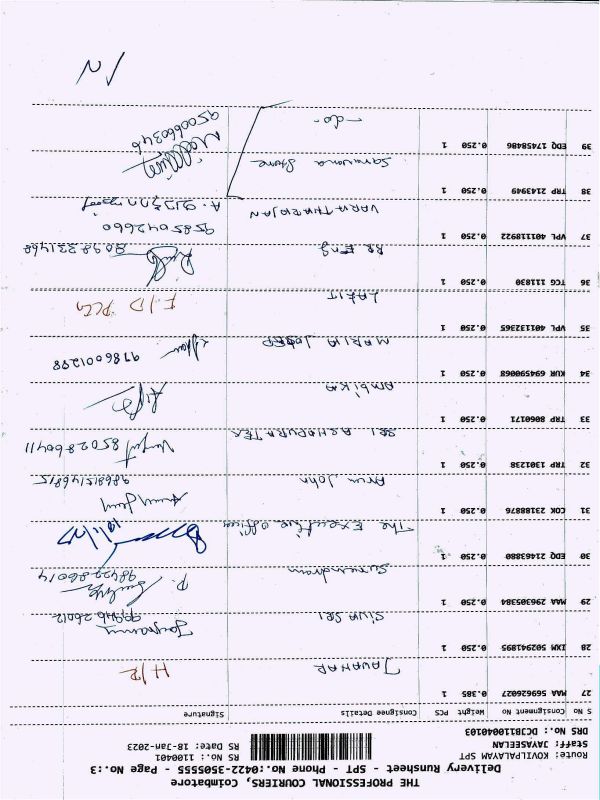 THE PROFESSIONAL COURIERS, Coimbatore
Delivery Runsheet - SPT - Phone No.:0422-3505555 - Page No.:3
Route: KOVILPALAYAM SPT RS No.: 1100401
Staff: JAYASEELAN RS Date: 18-Jan-2023
DRS No.: DCJB110040103
S No Consignment No Weight PCS Consignee Details Signature
27 MAA 569626027 0.385 1 JAVAHAR H/R
28 IXM 502941895 0.250 1 SIVA SRI
29 MAA 296305384 0.250 1 Surendran 9842286014
30 EDQ 2163880 0.250 1 The Executive officer
31 COK 2318876 0.250 1 Arun John
32 TRP 1301238 0.250 1 SRI ASHOPURATER 8502860411
33 TRP 8060171 0.250 1 Ambika
34 KUR 694590068 0.250 1 MARIA JOSEP 9786001298
35 VPL 401132365 0.250 1 LALIT
36 TCG 111830 0.250 1 RR Eng 8098331468
37 VPL 401118922 0.250 1 VARATHARAJAN 9585042660
38 TRP 2143949 0.250 1 Saravana Store
39 EDQ 17458486 0.250 1 -do-